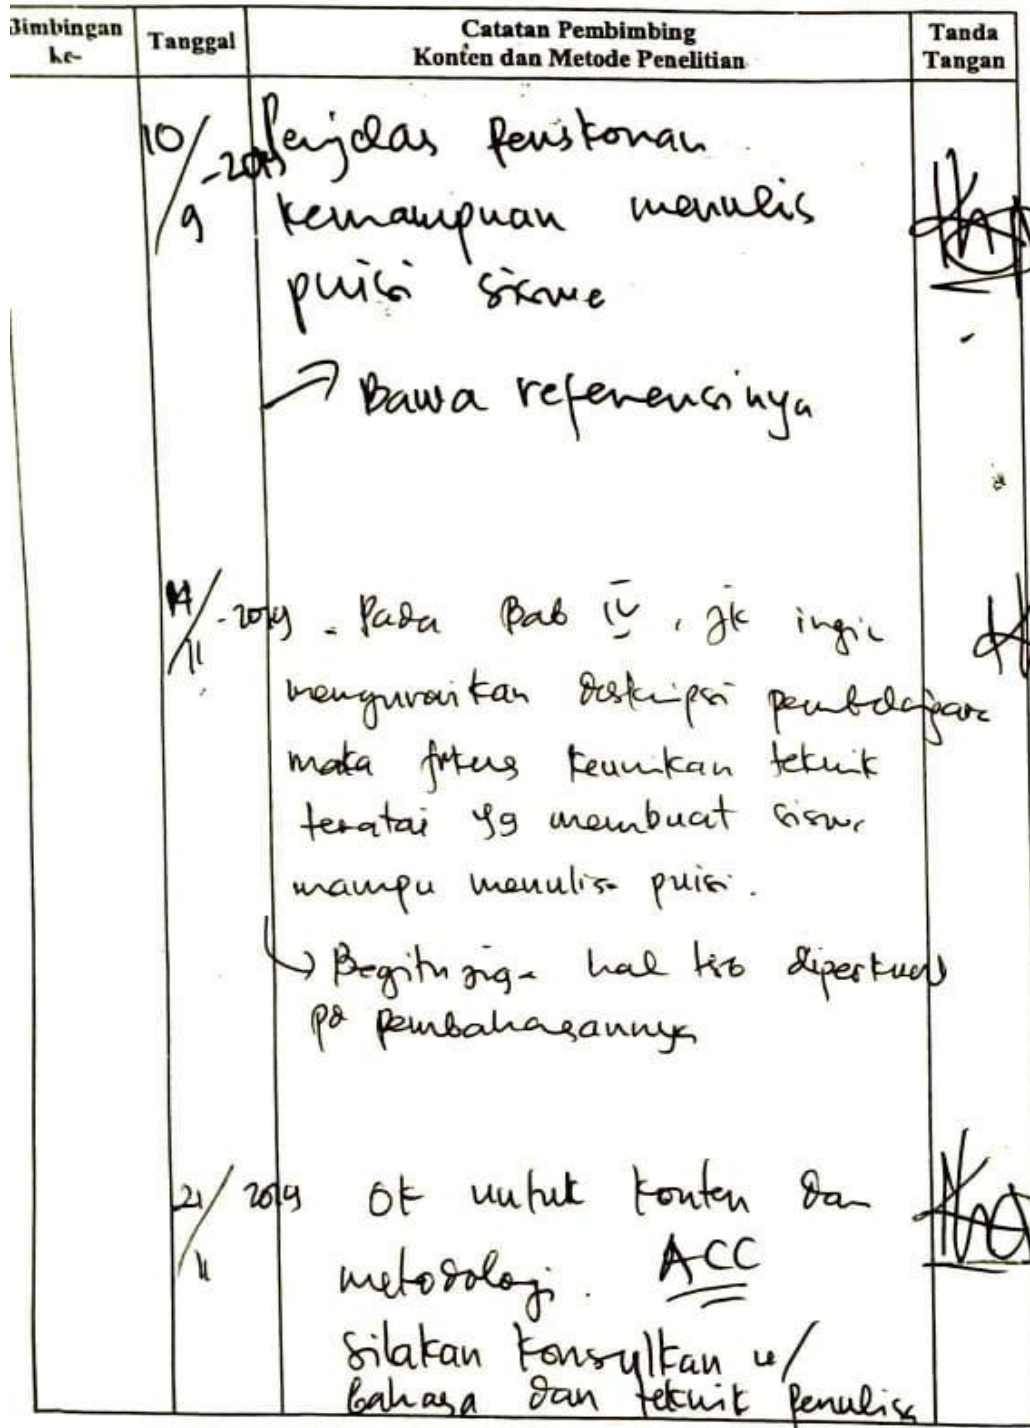 Bimbingan ke-
Tanggal
Catatan Pembimbing
Konten dan Metode Penelitian
Tanda Tangan
10/9-2019 Penjelas Penskoran
kemampuan menulis
puisi siswa
→ Bawa referensinya
14/11-2019 - Pada Bab IV, jk ingin
menguraikan deskripsi pembelajaran
maka fokus keunikan teknik
teratai yg membuat siswa
mampu menulis puisi.
↳ Begitu juga hal tsb diperkuat
pd pembahasannya
21/11 2019 Ok untuk konten dan
metodologi. ACC
silakan konsulkan u/
bahasa dan teknik penulisa